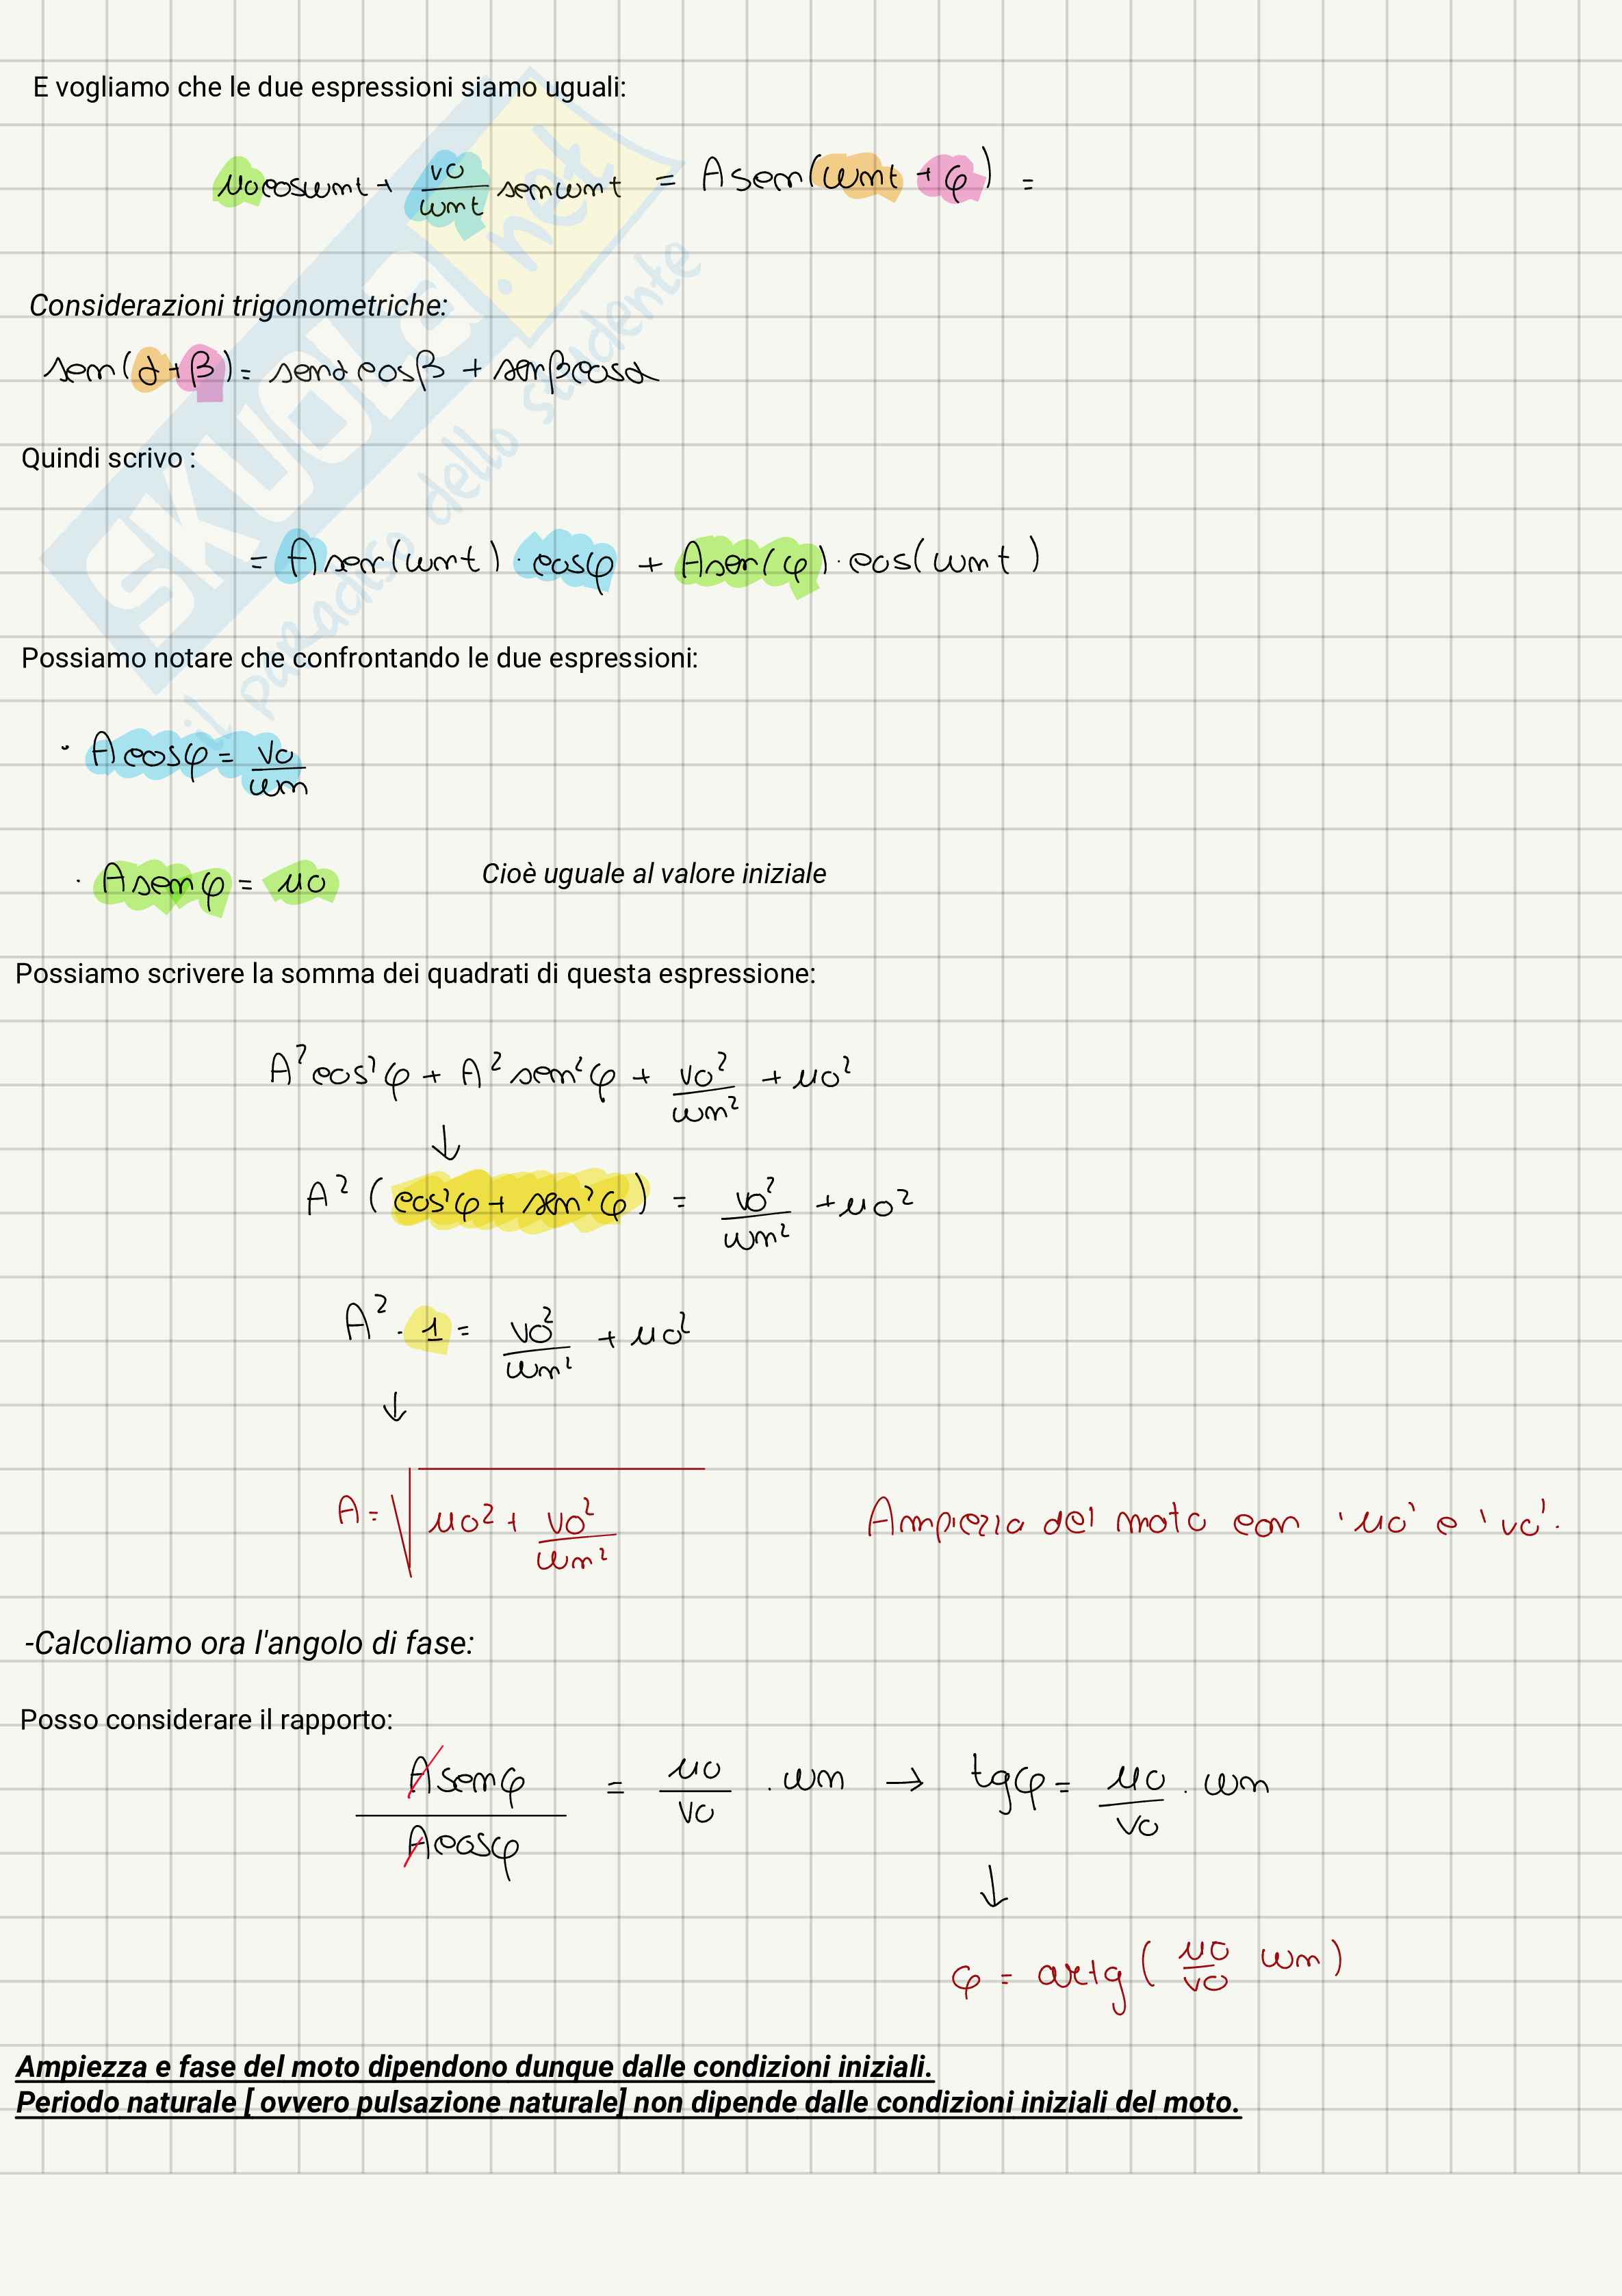 E vogliamo che le due espressioni siamo uguali:
u0 cosωnt + v0/ωnt senωnt = A sen(ωnt + φ) =
Considerazioni trigonometriche:
sen(α+β) = senα cosβ + senβ cosα
Quindi scrivo :
= A sen(ωnt) · cosφ + A sen(φ) · cos(ωnt)
Possiamo notare che confrontando le due espressioni:
· A cosφ = v0/ωn
· A senφ = u0 Cioè uguale al valore iniziale
Possiamo scrivere la somma dei quadrati di questa espressione:
A² cos²φ + A² sen²φ + v0²/ωn² + u0²
↓
A² (cos²φ + sen²φ) = v0²/ωn² + u0²
A² · 1 = v0²/ωn² + u0²
↓
A = √(u0² + v0²/ωn²) Ampiezza del moto con 'u0' e 'v0'.
-Calcoliamo ora l'angolo di fase:
Posso considerare il rapporto:
A senφ / A cosφ = u0/v0 · ωn → tgφ = u0/v0 · ωn
↓
φ = artg(u0/v0 ωn)
Ampiezza e fase del moto dipendono dunque dalle condizioni iniziali.
Periodo naturale [ ovvero pulsazione naturale] non dipende dalle condizioni iniziali del moto.
SKUOLa.net
il paradiso dello studente